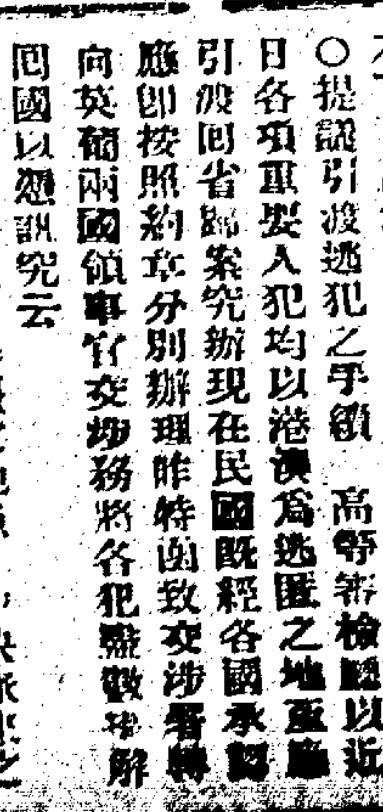 ○提訊引渡逃犯之手續　高等審檢廳以近
日各項重要人犯均以港澳爲逃匿之地亟應
引渡回省歸案究辦現在民國既經各國承認
應卽按照約章分別辦理昨特函致交涉署轉
向英葡兩國領事官交涉務將各犯點數押解
回國以憑訊究云